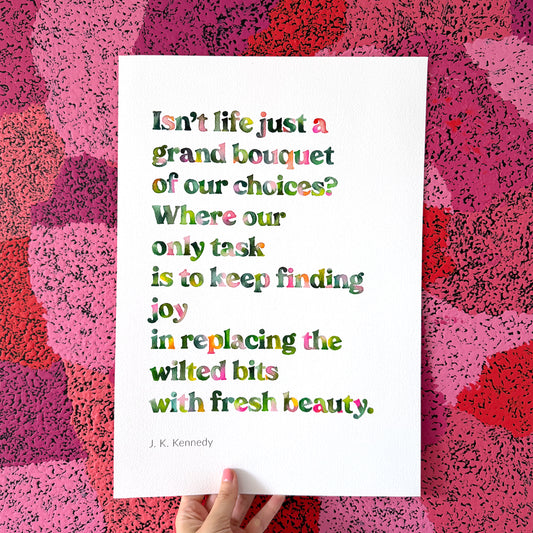 Isn't life just a
grand bouquet
of our choices?
Where our
only task
is to keep finding
joy
in replacing the
wilted bits
with fresh beauty.
J. K. Kennedy